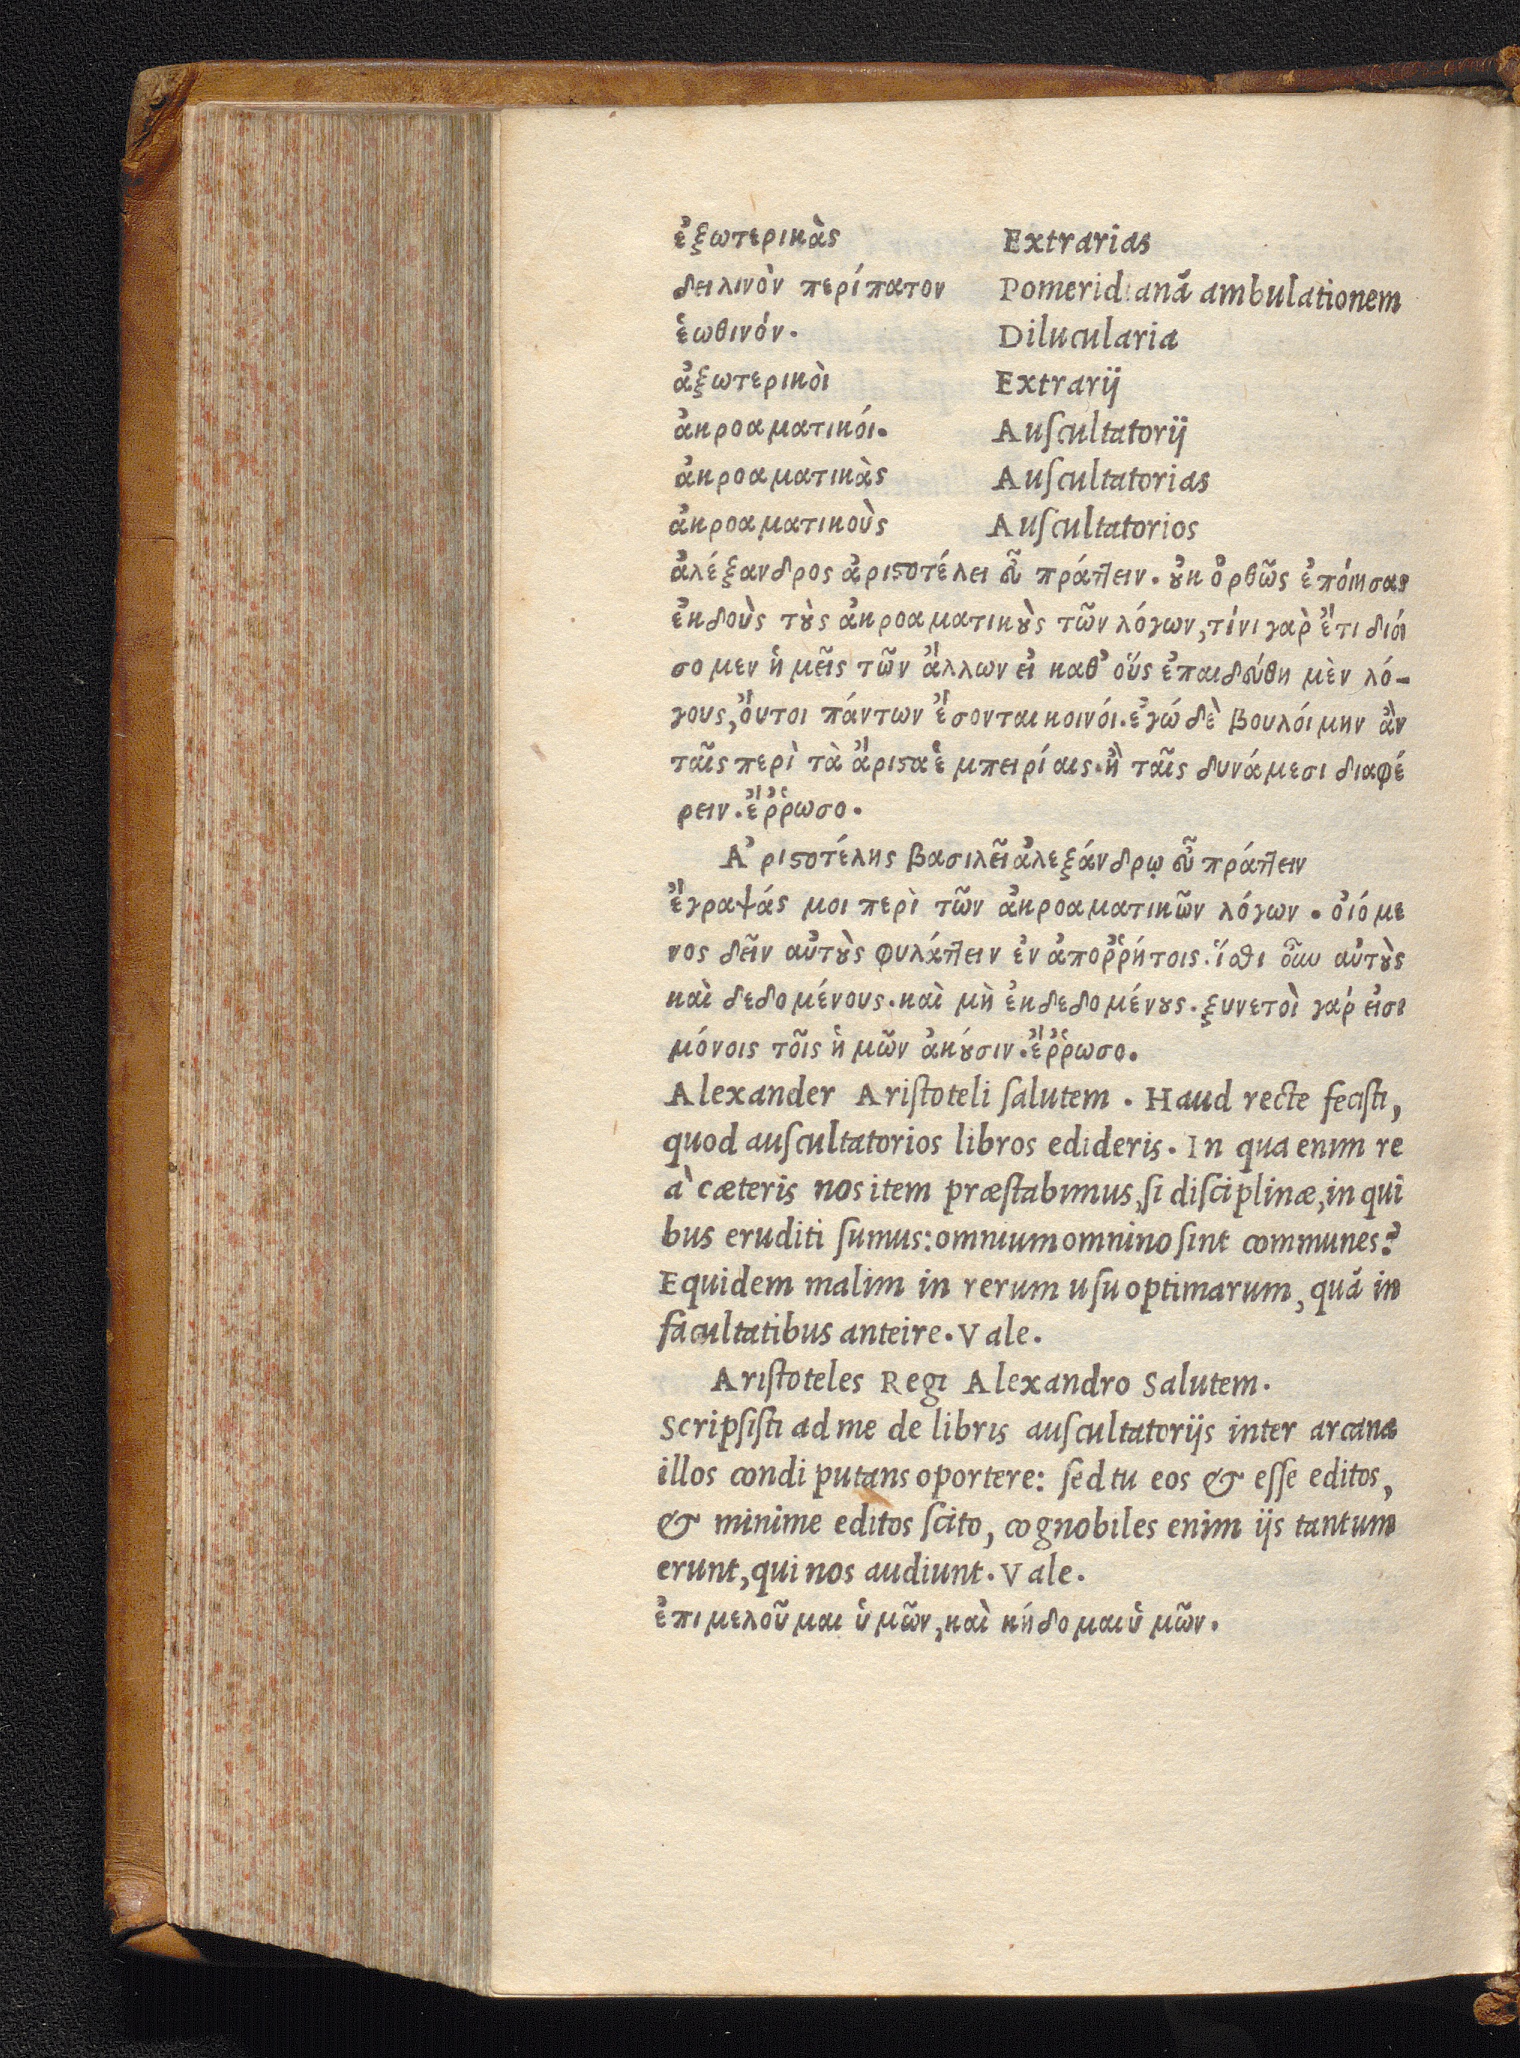 ἐξωτερικὰς Extrarias
δειλινὸν περίπατον Pomeridianã ambulationem
ἑωθινόν. Dilucularia
ἀξωτερικοὶ Extrarij
ἀκροαματικόι. Auſcultatorij
ἀκροαματικὰς Auſcultatorias
ἀκροαματικοὺς Auſcultatorios
ἀλέξανδρος ἀριϛοτέλει εὖ πράτλειν. ȣ̓κ ὀρθῶς ἐπόιησας
ἐκδοὺς τȣ̀ς ἀκροαματικȣ̀ς τῶν λόγων, τίνι γαρ̀ ἔτι διόι
σομεν ἡμεῖς τῶν ἄλλων εἰ καθ’ οὕς ἐπαιδεύθημὲν λό-
γους, ὄυτοι πάντων ἔσονται κοινόι. ἐγώ δὲ βουλόιμην ἂν
ταῖς περὶ τὰ ἄριϛα ἐμπειρίαις. ἢ ταῖς δυνάμεσι διαφέ
ρειν. ἔῤῥωσο.
Ἀριϛοτέλης βασιλεῖ ἀλεξάνδρῳ εὖ πράτλειν
ἔγραψάς μοι περὶ τῶν ἀκροαματικῶν λόγων. οἰόμε
νος δεῖν αὐτȣ̀ς φυλάτλειν ἐν ἀποῤῥήτοις. ἴσθι οὖν αὐτȣ̀ς
καὶ δεδομένους. καὶ μὴ ἐκδεδομένȣς. ξυνετοὶ γαρ́ εἰσι
μόνοις τοῖς ἡμῶν ἀκȣ́σιν. ἔῤῥωσο.
Alexander Ariſtoteli ſalutem. Haud recte feciſti,
quod auſcultatorios libros edideris. In qua enim re
à cæteris nos item præſtabimus, ſi diſciplinæ, in qui
bus eruditi ſumus: omnium omnino ſint communes?
Equidem malim in rerum uſu optimarum, quã in
facultatibus anteire. Vale.
Ariſtoteles Regi Alexandro Salutem.
Scripſiſti ad me de libris auſcultatorijs inter arcana
illos condi putans oportere: ſed tu eos & eſſe editos,
& minime editos ſcito, cognobiles enim ijs tantum
erunt, qui nos audiunt. Vale.
ἐπιμελοῦμαι ὑμῶν, καὶ κήδομαι ὑμῶν.